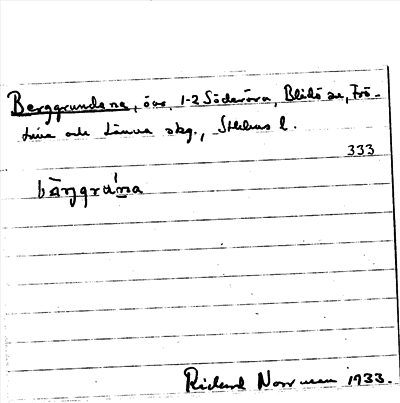 Berggrundarna, öar, 1-2 Söderöra, Blidö sn, Frö-
tuna och Länna skg., Sthlms l.
333
Rickard Norrman 1933.